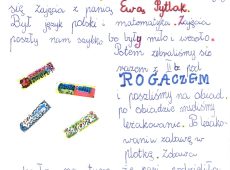 się zajęcia z panią Ewą Pytlak.
Był język polski i matematyka. Zajęcia
poszły nam szybko bo były miło i wesoło.
Potem zebraliśmy się
razem z II b pod
ROGACZEM
i poszliśmy na obiad
po obiedzie mieliśmy
leżakowanie. Po leżako
waniu zabawę w
plotkę.